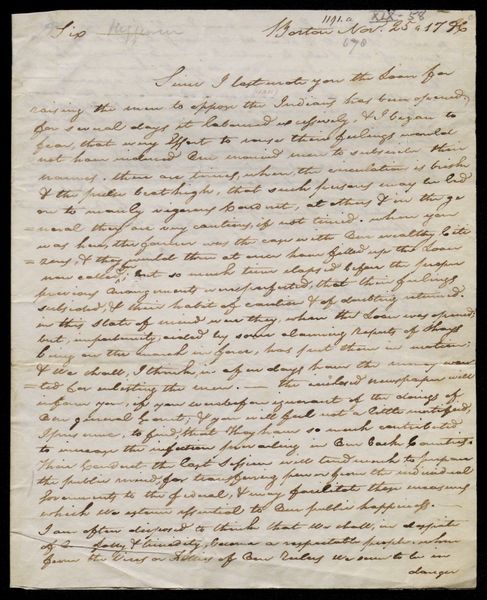 1191.a XIX-58
Sir Higginson Boston Nov. 25. 1786
670
Since I last wrote you the Loan for
raising the men to oppose the Indians has been opened;
for several days it laboured excessively & I began to
fear, that every effort to rouse their feelings would
not have induced our monied men to subscribe their
names. there are times, when the circulation is brisk
& the pulse beat high, that such persons may be led
on to manly vigorous Conduct, at others & in the ge
=neral they are very cautious, if not timid. when you
was here, the former was the case with our wealthy Citi
=zens, & they would then at once have filled up the Loan
now called for, but so much time elapsed before the proper
previous arrangements were perfected, that their feelings
subsided, & their habit of caution & of doubting returned.
in this state of mind were they when the Loan was opened;
but, importunity, aided by some alarming reports of Shays
being on the march in force, has put them in motion;
& we shall, I think, in a few days have the money wan
=ted for enlisting the men. — the enclosed newspaper will
inform you, if you were before ignorant of the doings of
our general Court; & you will feel not a little mortified,
I presume, to find, that they have so much contributed
to increase the infection prevailing in our back Counties.
Their Conduct the last Session will tend much to prepare
the public mind for transferring power from the individual
Governments to the federal, & may facilitate those measures
which we esteem essential to our public happiness. —
I am often disposed to think that we shall, in despite
of our folly & timidity, become a respectable people. when
from the Vices or follies of our rulers we seem to be in
danger